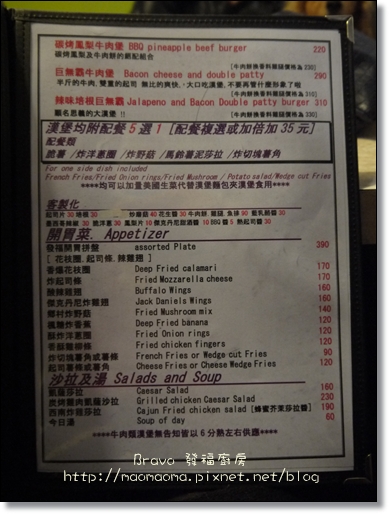 碳烤鳳梨牛肉堡 BBQ pineapple beef burger 220
碳烤鳳梨及牛肉餅的新配組合
[牛肉餅換香料雞腿價格為230]
巨無霸牛肉堡 Bacon cheese and double patty 290
半斤的牛肉,雙重的起司 無比的爽快,大口吃漢堡,不要再管什麼形象了啦
[牛肉餅換香料雞腿價格為310]
辣味培根巨無霸 Jalapeno and Bacon Double patty burger 310
顧名思義的大漢堡 !!
[牛肉餅換香料雞腿價格為330]
漢堡均附配餐 5 選 1 [配餐複選或加倍加 35 元]
配餐類
脆薯 /炸洋蔥圈 /炸野菇 /馬鈴薯泥莎拉 /炸切塊薯角
For one side dish included
French Fries/Fried Onion rings/Fried Mushroom / Potato salad/Wedge cut Fries
****均可以加量美國生菜代替漢堡麵包夾漢堡食用****
客製化
開胃菜. Appetizer
發福開胃拼盤 assorted Plate 390
[ 花枝圈. 起司條. 辣雞翅 ]
香爆花枝圈 Deep Fried calamari 170
炸起司條 Fried Mozzarella cheese 170
酸辣雞翅 Buffalo Wings 160
傑克丹尼炸雞翅 Jack Daniels Wings 160
鄉村炸野菇 Fried Mushroom mix 140
楓糖炸香蕉 Deep Fried banana 120
酥炸洋蔥圈 Fried Onion rings 120
香酥雞柳條 Fried chicken fingers 120
炸切塊薯角或薯條 French Fries or Wedge cut Fries 90
起司薯條或薯角 Cheese Fries or Cheese Wedge Fries 120
沙拉及湯 Salads and Soup
凱薩沙拉 Caesar Salad 160
炭烤雞肉凱薩沙拉 Grilled chicken Caesar Salad 230
西南炸雞莎拉 Cajun Fried chicken salad [蜂蜜芥茉莎拉醬] 190
今日湯 Soup of day 60
****牛肉類漢堡無告知皆以 6 分熟左右供應****
Bravo 發福廚房
http://maomaoma.pixnet.net/blog